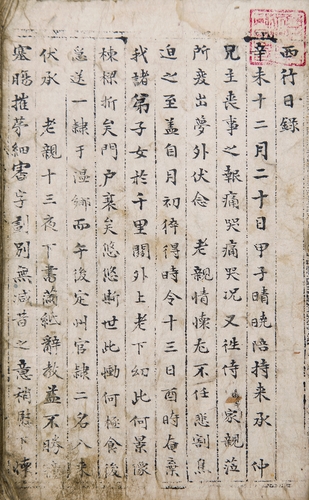 西行日錄
辛未十二月二十日甲子晴晩陪持來承 仲
兄主喪事之報痛哭痛哭況又徃侍 家親莅
所变出夢外伏念 老親情懷尤不任悲割焦
迫之至盖自月初得時令十三日酉時奄棄
我諸弟子女於千里關外上老下幼此何景像
棟樑折矣門户衰矣悠悠斯世此慟何極食後
急送一隷于溫鄕而午後定州官隷二名入來
伏承 老親十三夜下書滿紙辭教益不勝
塞腸摧夢細書字劃別無减昔之意稍慰下懷